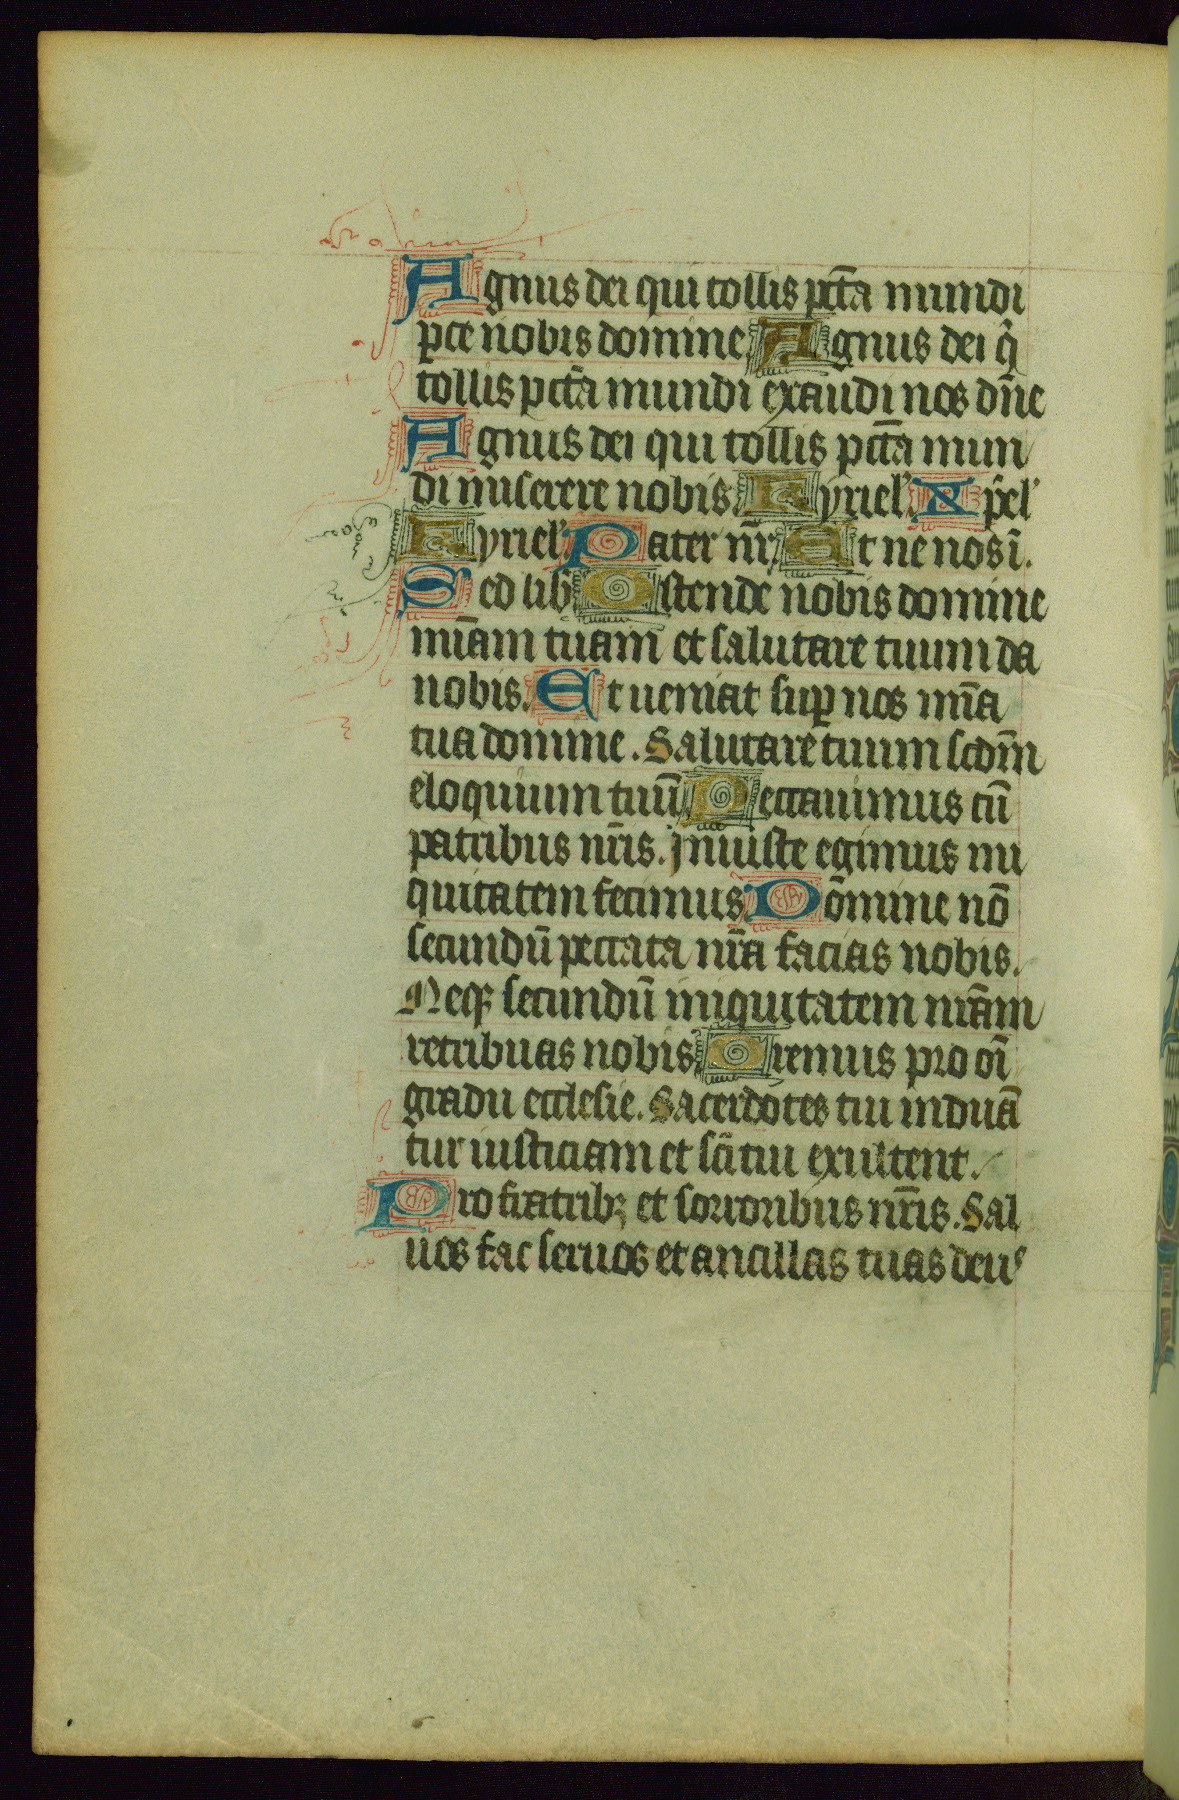 Agnus dei qui tollis pctā mundi
ꝑce nobis domine. Agnus dei qͥ
tollis pctā mundi exaudi nos dn̄e
Agnus dei qui tollis pctā mun
di miserere nobis. Kyriel' Xp̄el'
Kyriel' Pater nr̄. Et ne nos ī.
Sed lib̄ Ostende nobis domine
miām tuam et salutare tuum da
nobis. Et ueniat suꝑ nos mīa
tua domine. Salutare tuum scdm̄
eloquium tuū Peccauimus cū
patribus nr̄is. Iniuste egimus ini
quitatem fecimus Domine nō
secundū peccata nr̄a facias nobis.
Neqꝫ secundū iniquitatem nr̄am
retribuas nobis. Oremus pro oī
gradu ecclesie. Sacerdotes tui induā
tur iusticiam et sc̄i tui exultent.
Pro fratribꝫ et sororibus nr̄is. Sal
uos fac seruos et ancillas tuas deus